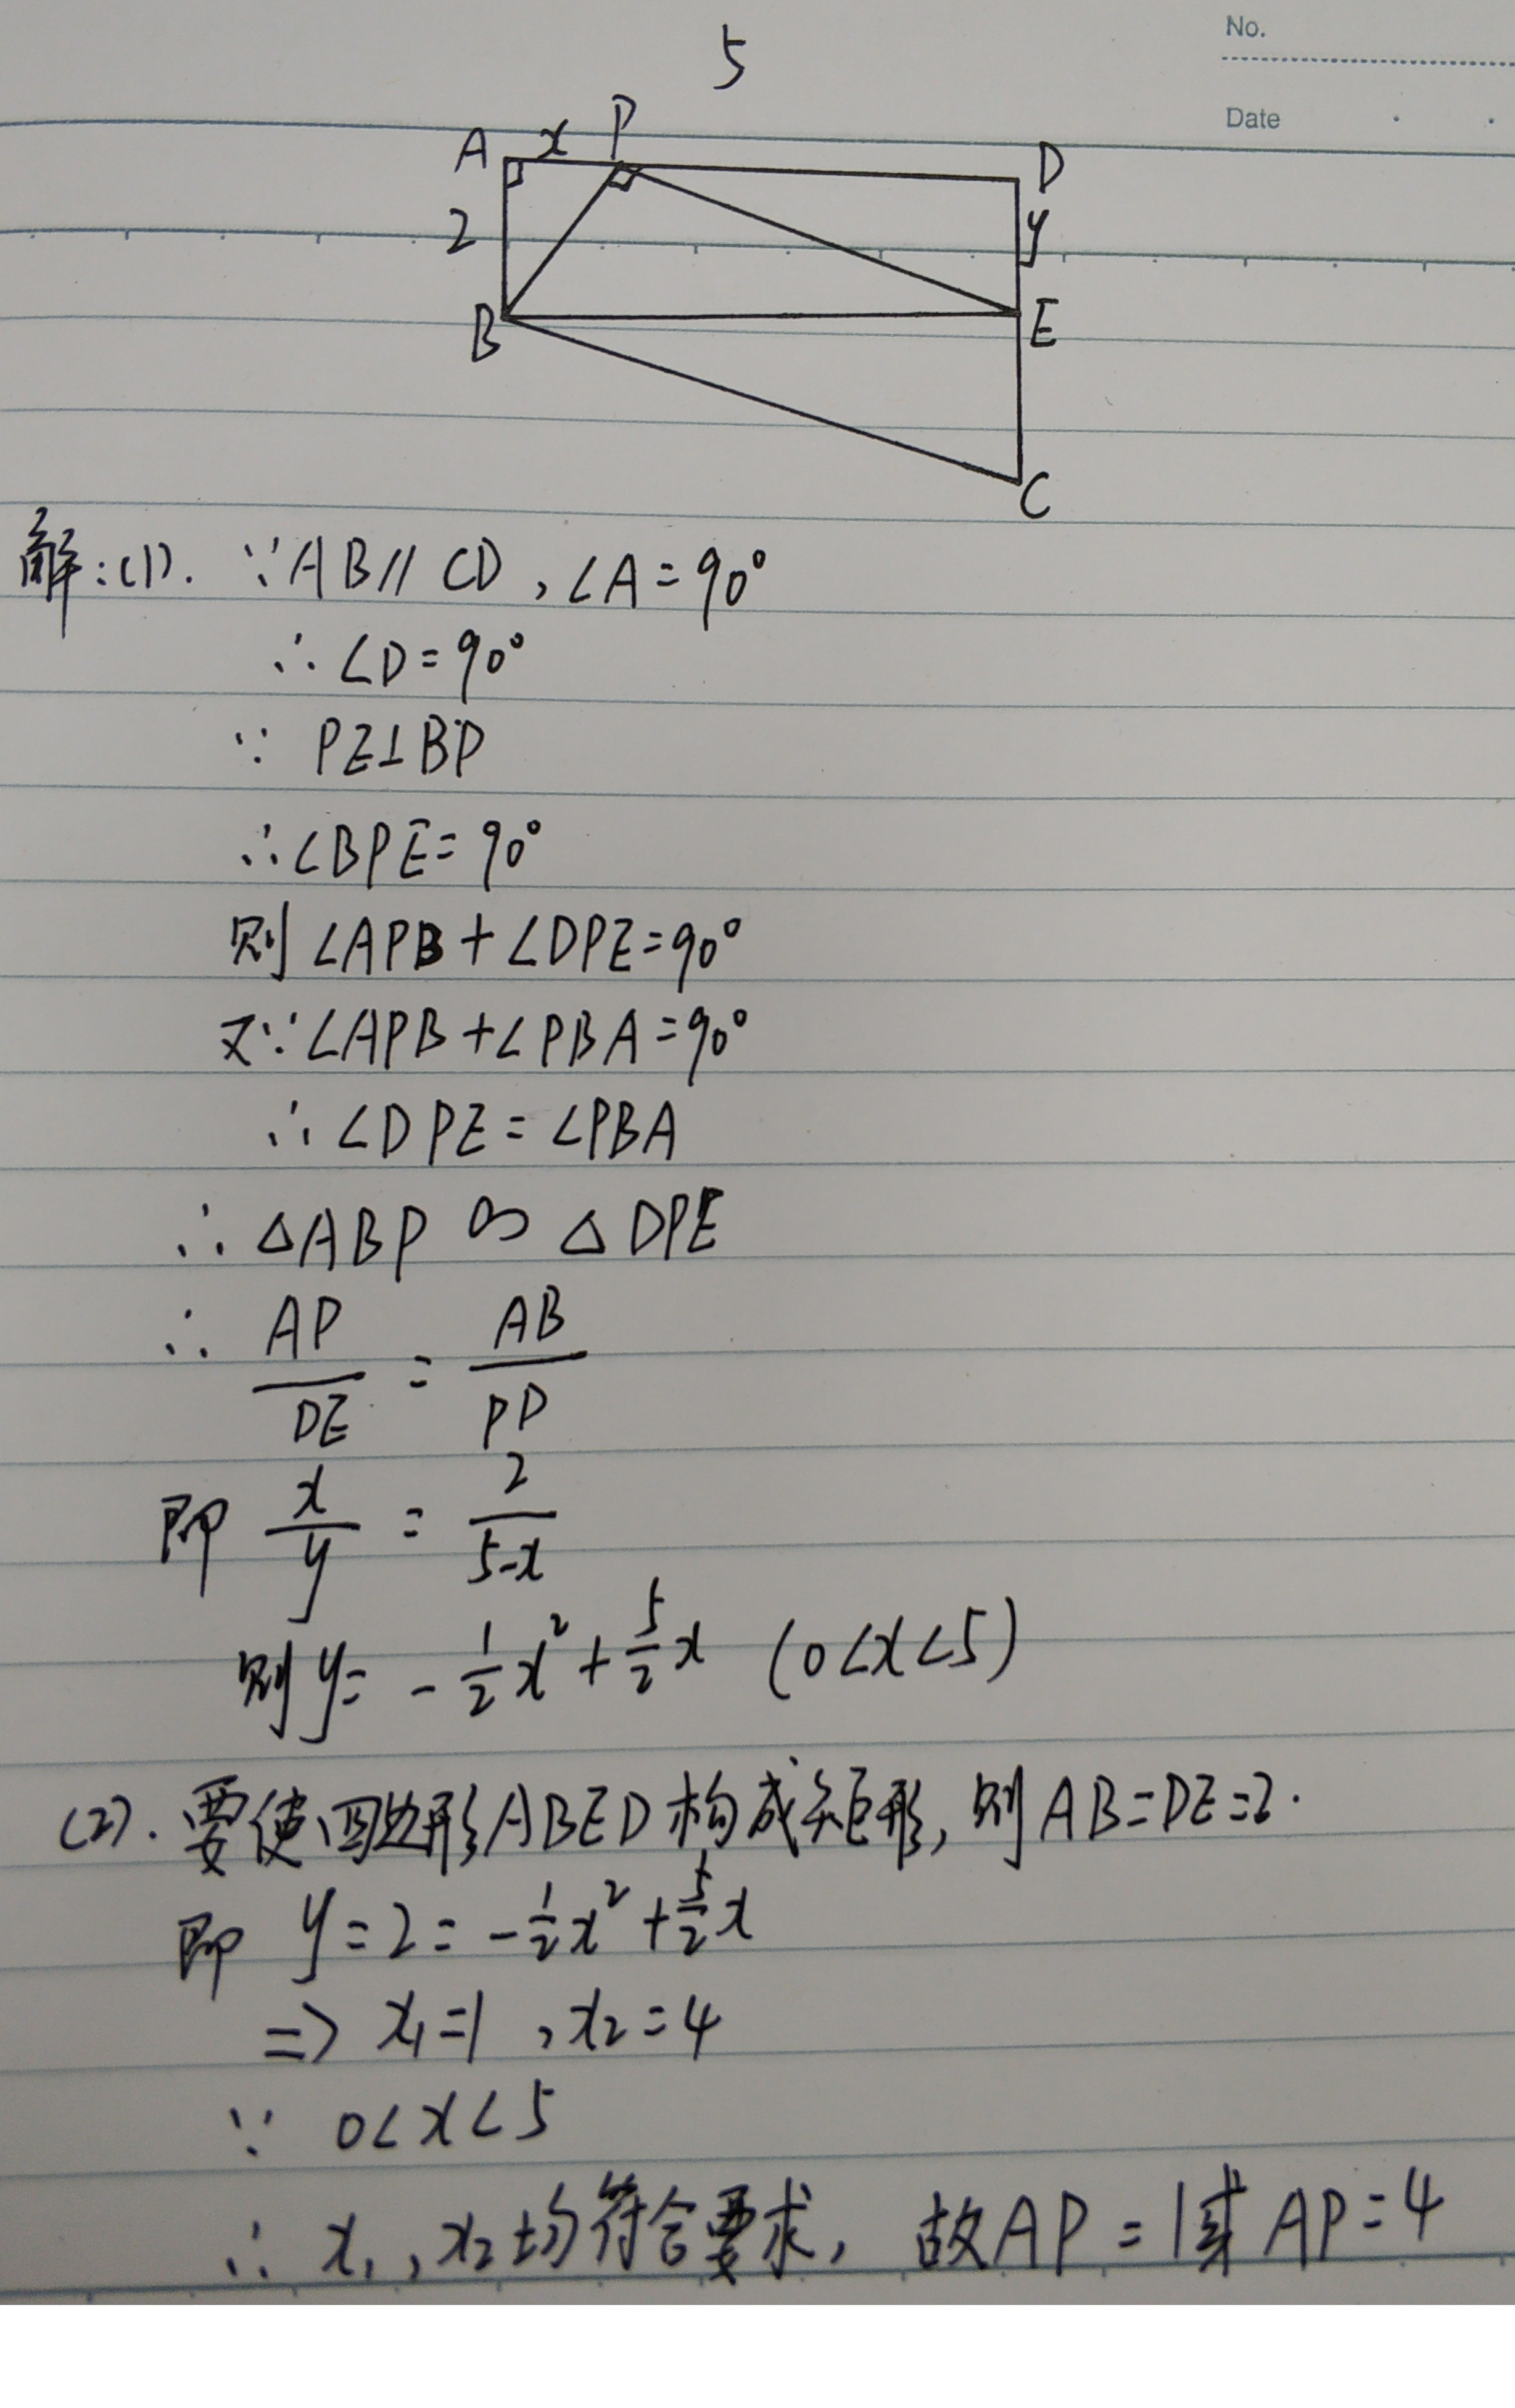 No.
5
Date
A x P D
2 y
B E
C
解:(1). ∵AB∥CD,∠A=90°
∴∠D=90°
∵ PE⊥BP
∴∠BPE=90°
则∠APB+∠DPE=90°
又∵∠APB+∠PBA=90°
∴∠DPE=∠PBA
∴△ABP∽△DPE
∴ AP/DE = AB/PD
即 x/y = 2/5-x
则y=-1/2x²+5/2x (0<x<5)
(2).要使四边形ABED构成矩形,则AB=DE=2.
即 y=2=-1/2x²+5/2x
=> x₁=1 ,x₂=4
∵ 0<x<5
∴ x₁,x₂均符合要求,故AP=1或AP=4